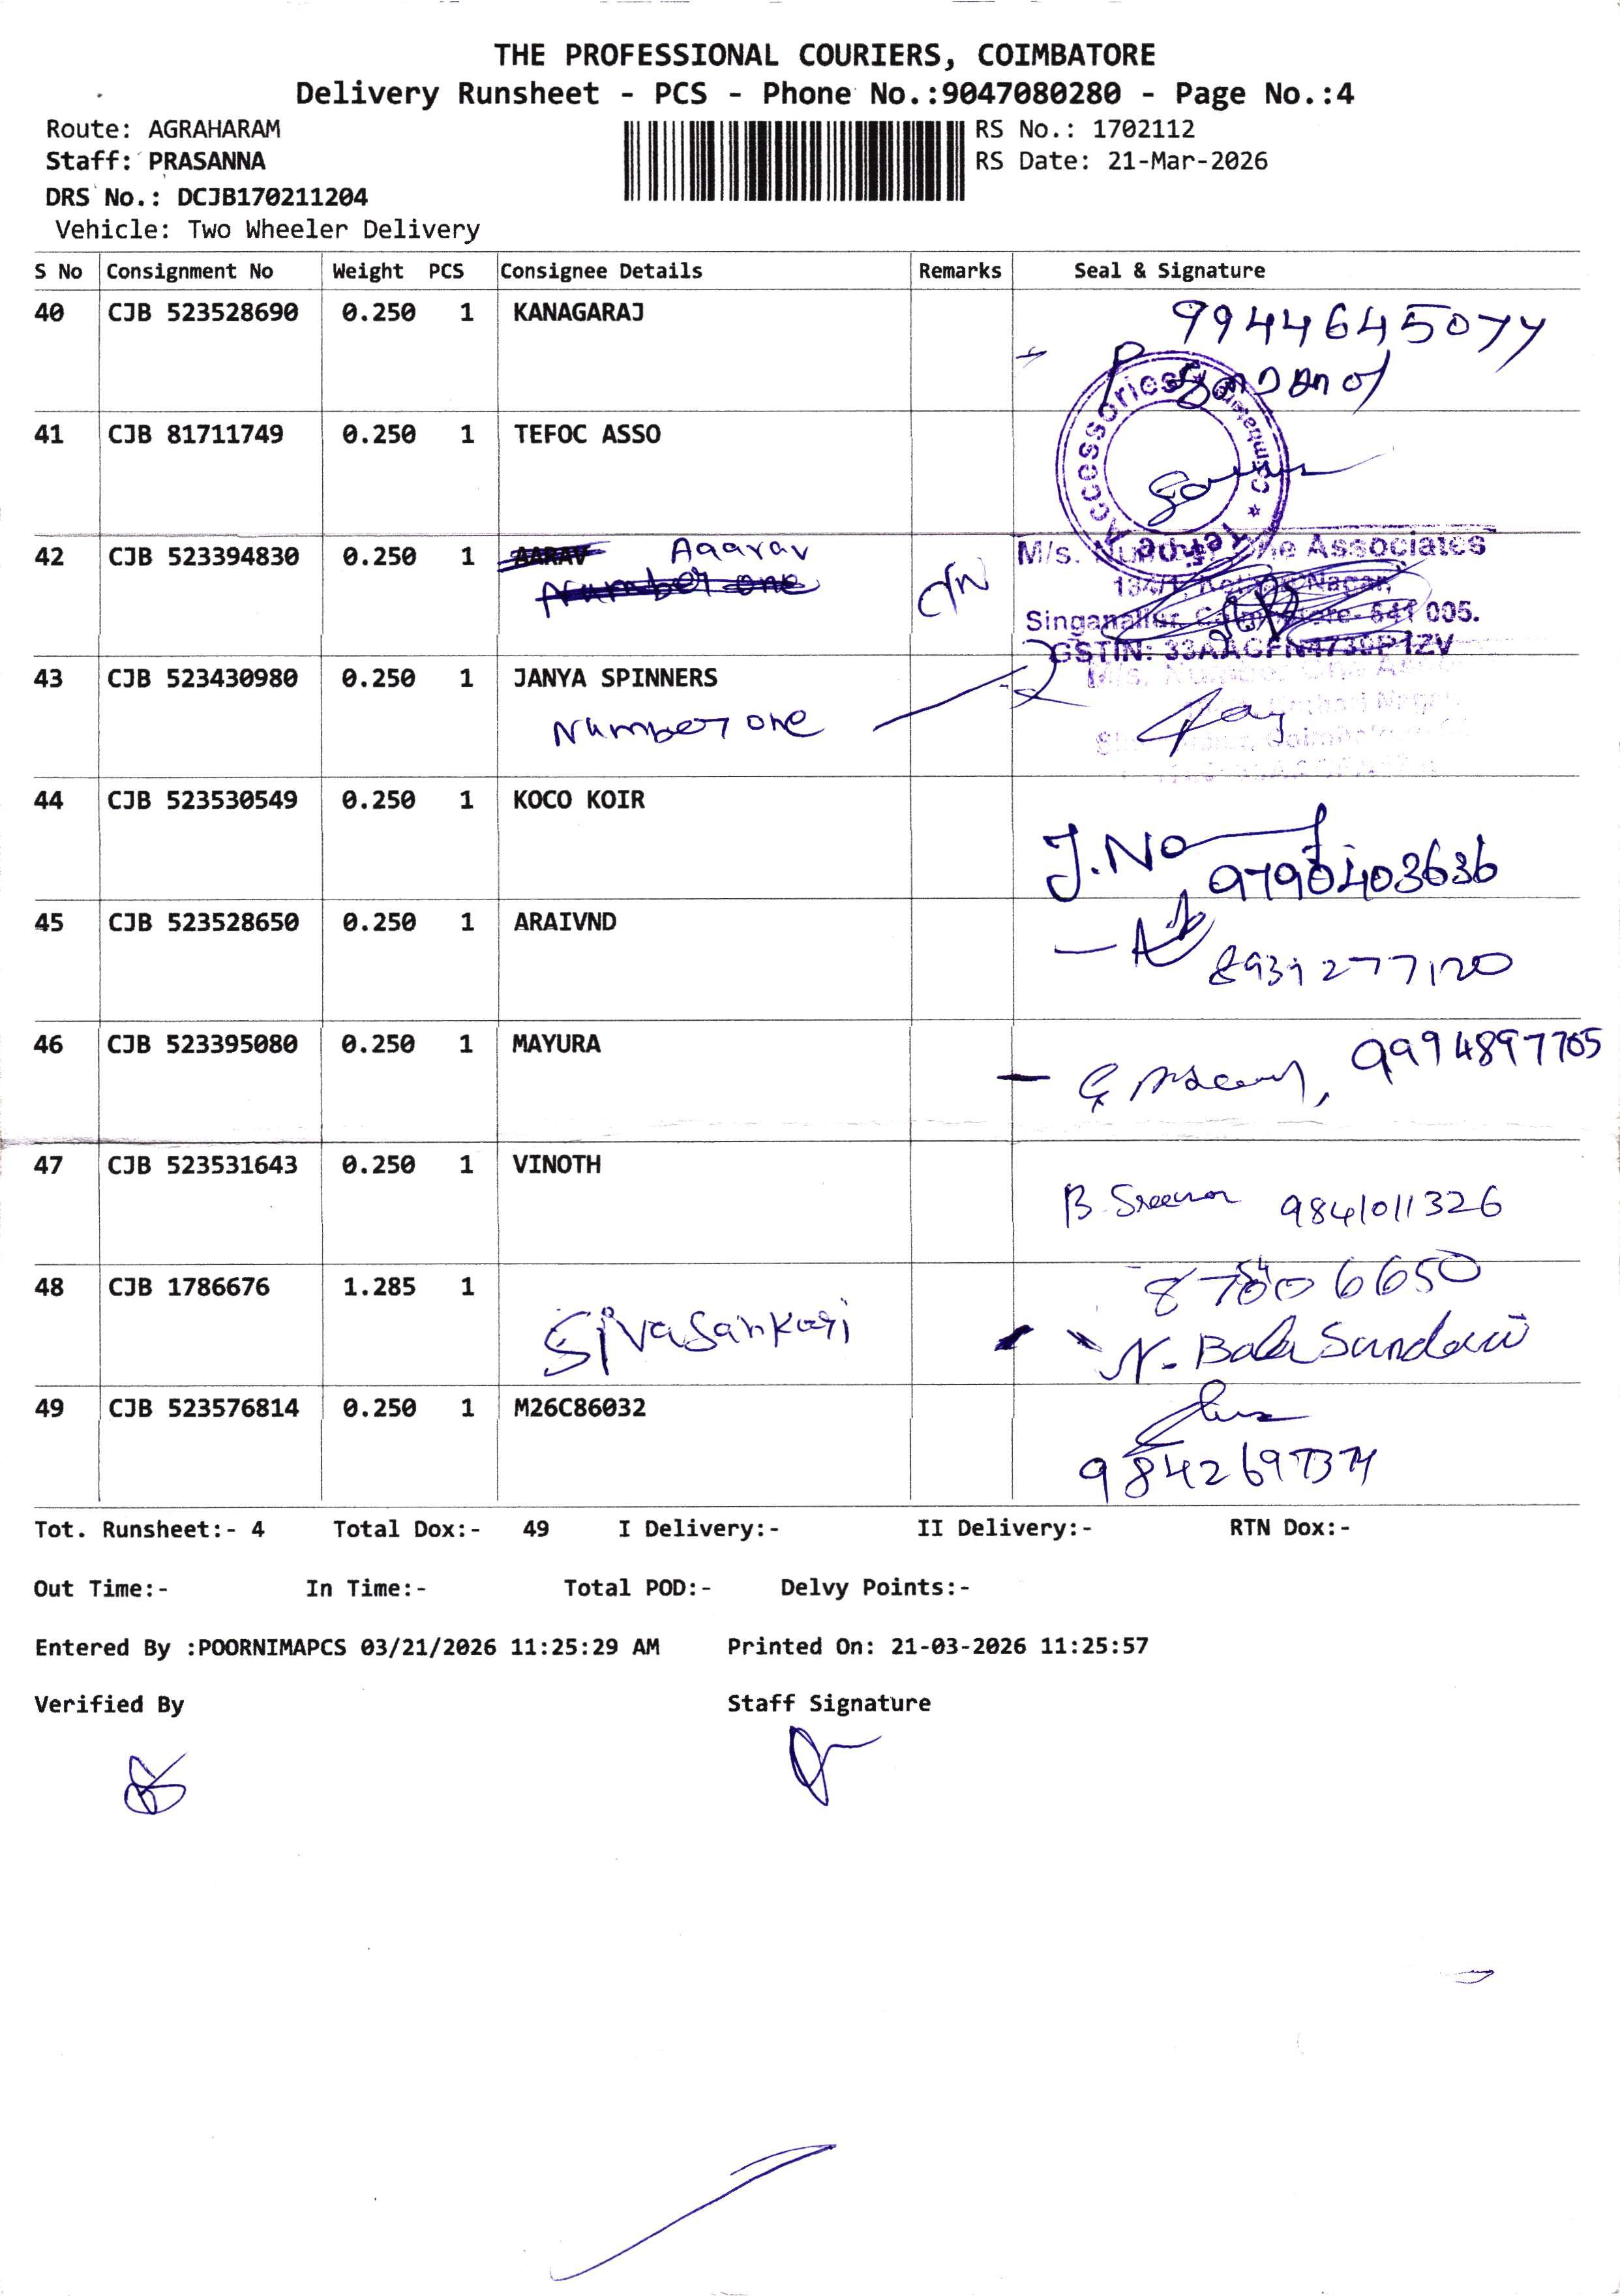 THE PROFESSIONAL COURIERS, COIMBATORE
Delivery Runsheet - PCS - Phone No.:9047080280 - Page No.:4
Route: AGRAHARAM
RS No.: 1702112
Staff: PRASANNA
RS Date: 21-Mar-2026
DRS No.: DCJB170211204
Vehicle: Two Wheeler Delivery
S No Consignment No Weight PCS Consignee Details Remarks Seal & Signature
40 CJB 523528690 0.250 1 KANAGARAJ
41 CJB 81711749 0.250 1 TEFOC ASSO
Accessories
42 CJB 523394830 0.250 1 AARAV Aaarav
Number one
M/s. Number One Associates
Singanallur, Coimbatore- 641 005.
43 CJB 523430980 0.250 1 JANYA SPINNERS
Number one
44 CJB 523530549 0.250 1 KOCO KOIR
45 CJB 523528650 0.250 1 ARAIVND
8939277120
46 CJB 523395080 0.250 1 MAYURA
9994897705
47 CJB 523531643 0.250 1 VINOTH
9841011326
48 CJB 1786676 1.285 1
Sivasankari
N. Bala Sundari
49 CJB 523576814 0.250 1 M26C86032
Tot. Runsheet:- 4 Total Dox:- 49 I Delivery:- II Delivery:- RTN Dox:-
Out Time:- In Time:- Total POD:- Delvy Points:-
Entered By :POORNIMAPCS 03/21/2026 11:25:29 AM Printed On: 21-03-2026 11:25:57
Verified By Staff Signature